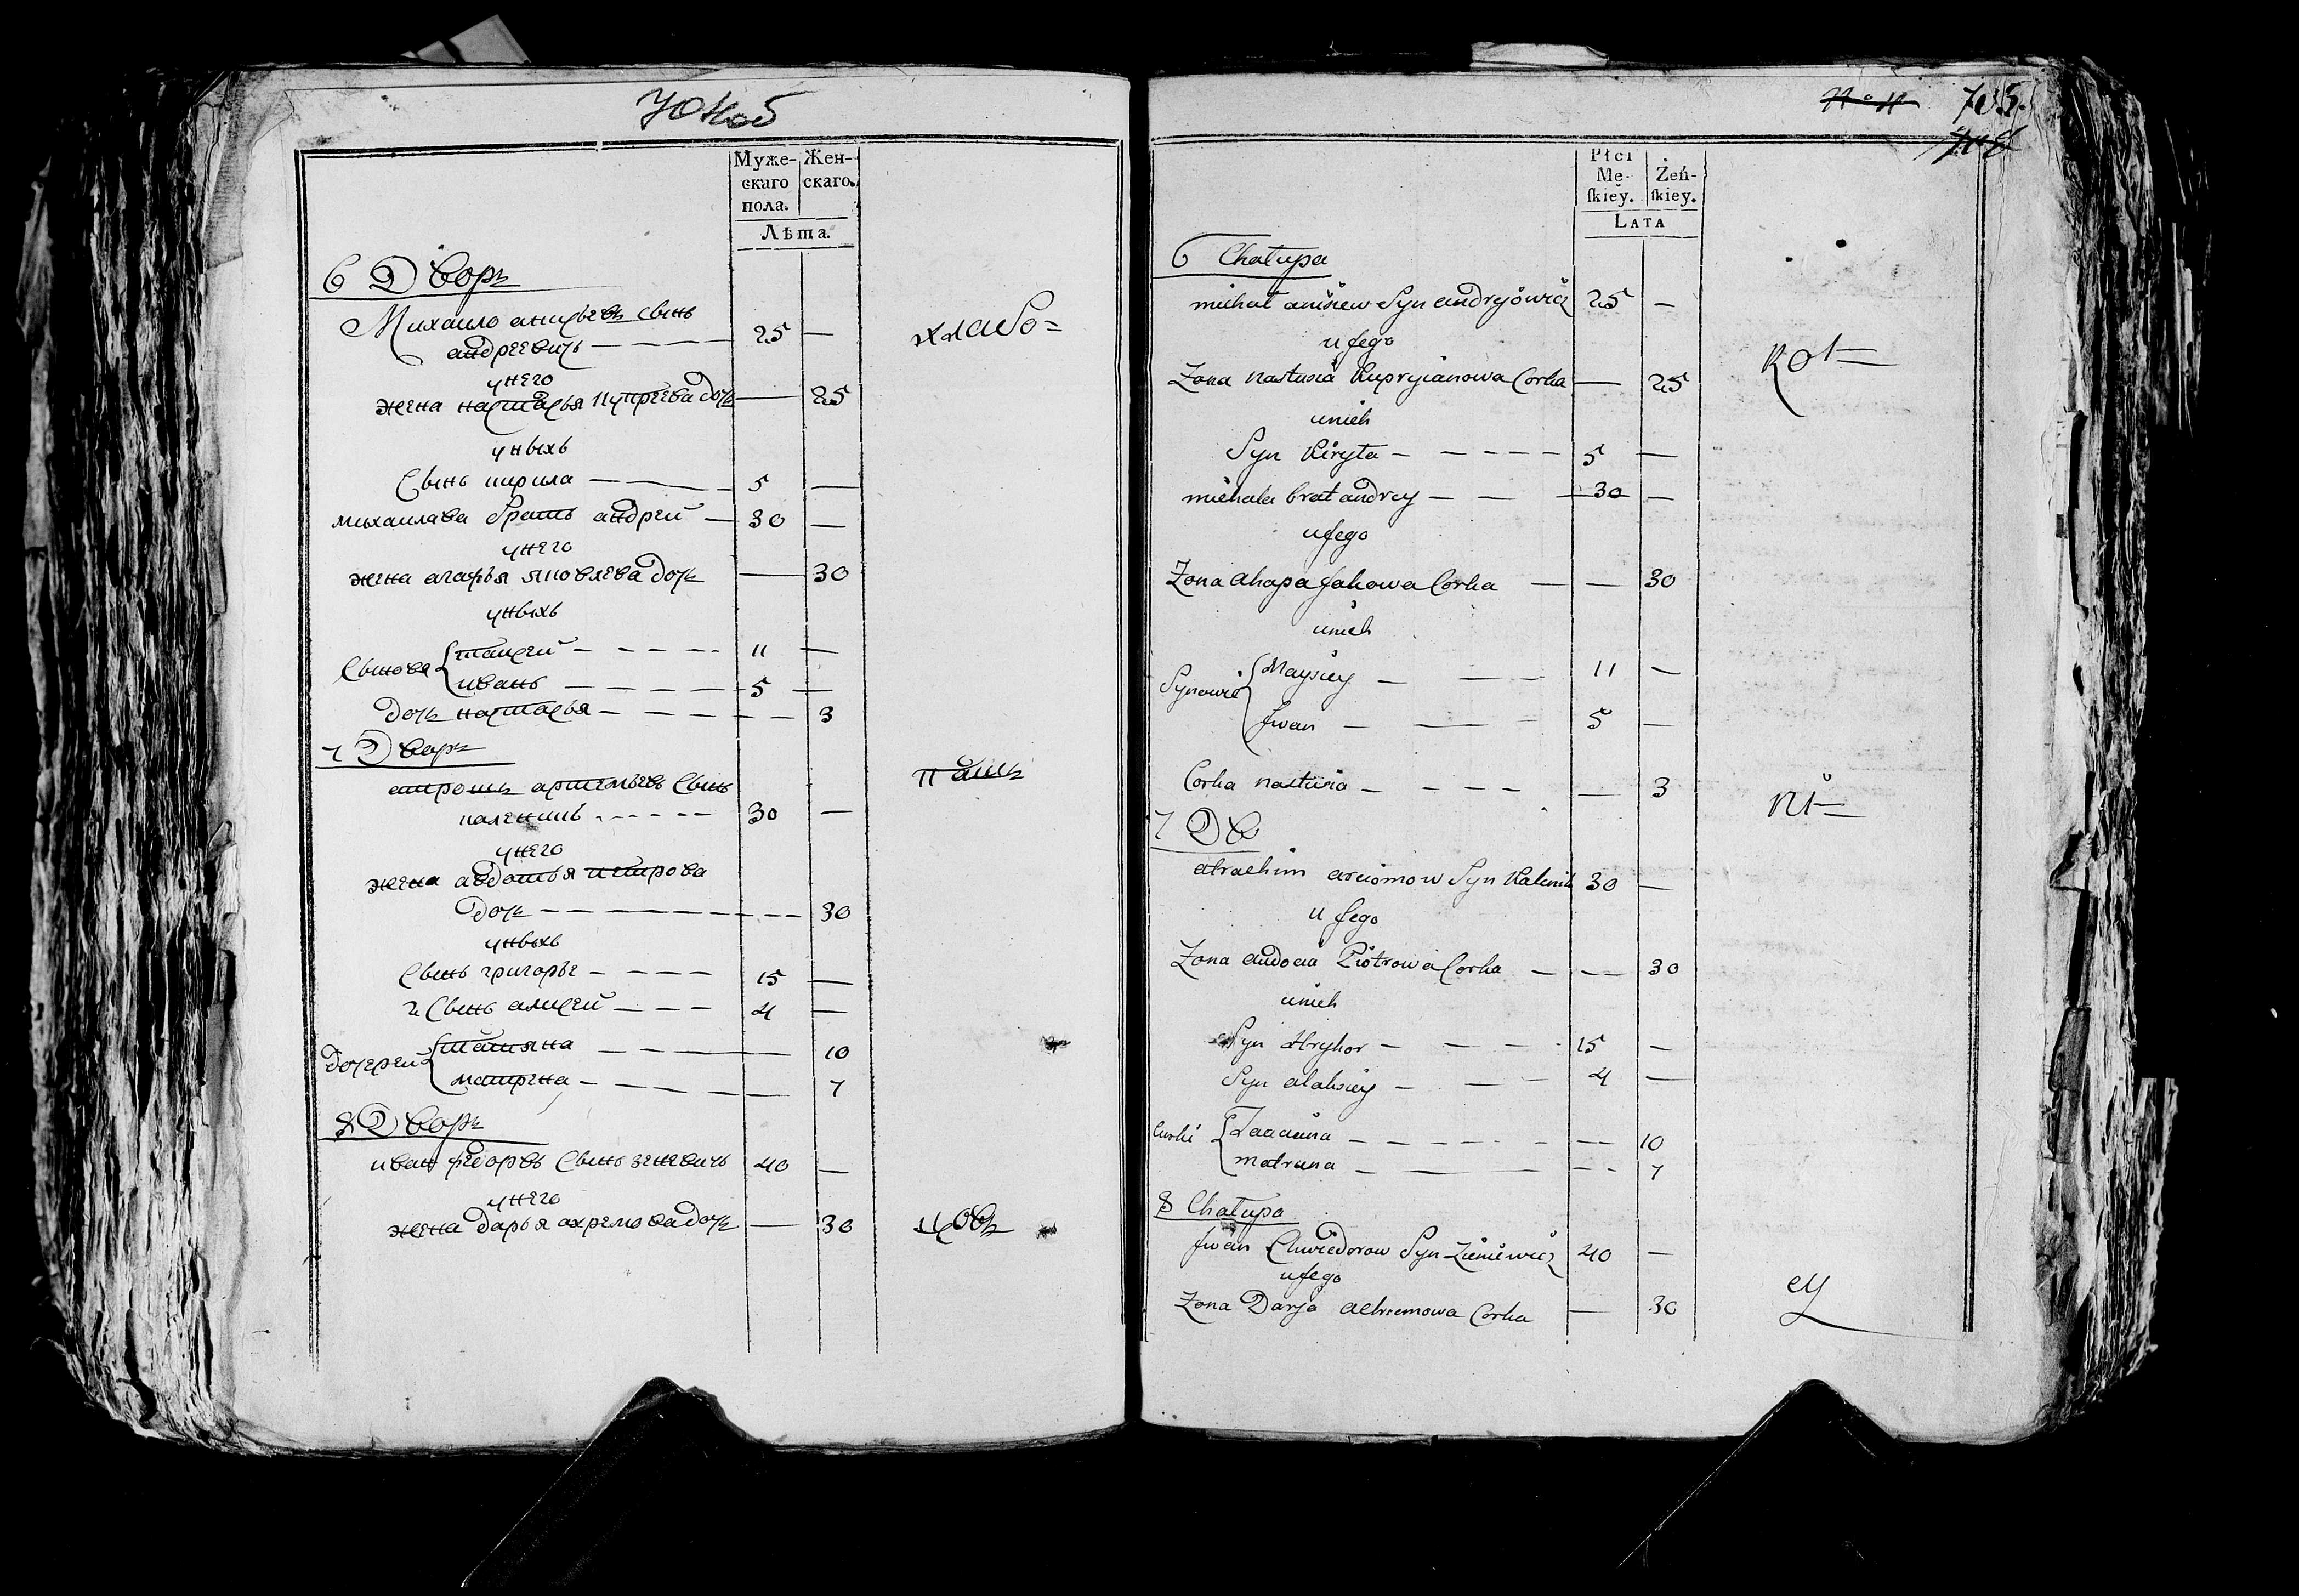 Муже-
скаго
пола.
Жен-
скаго.
Лѣта.
6 Дворъ
Михаило анисьевъ сынъ
андреевичъ — — — — 25 —
унего
жена настасья купреева дочь — 25
уныхъ
сынъ кирила — — — 5 —
михаилава братъ андрей — 30 —
унего
жена агафья яковлева дочь — 30
уныхъ
Сыновя
ивань — — — — — 5 —
дочь настасья — — — — — 3
7 Дворъ
артемьевъ сынъ
каленикъ - - - - - 30 —
унего
жена авдотья петрова
дочь — — — — — — — 30
уныхъ
сынъ григорье — — — — 15 —
2 сынъ алисей — — — 4 —
дочерей { татяна — — — — 10
матрена — — — — — 7
8 Дворъ
иван федоровъ сынъ зеневичъ 40 —
унего
жена дарья ахремова дочь — 30
хлабо=
705.
Płci
Mę-
skiey.
Żeń-
skiey.
LATA
6 Chałupa
michał anisiew Syn andrejowicz 25 —
u jego
Zona nastusia Kupryianowa Corka — 25
unich
Syn Kiryła — — — — — 5 —
michała brat andrey — — — 30 —
ujego
Zona ahapa Jakowa Corka — — 30
unich
Synowie { Maysiey — — — 11 —
Jwan — — — 5 —
Corka nastusia — — — — — — 3
7 Дв
atrachim arciomow Syn Kalenik 30 —
u jego
Zona audocia Piotrowa Corka — — — 30
unich
Syn Hryhor — — — — 15 —
Syn alaksiey — — — 4 —
Curki { Taaciana — — — — — 10
matruna — — — — — 7
8 Chałupa
Jwan Chwiedorow Syn Zieniewicz 40 —
ujego
Zona Darja achremowa Corka — 30